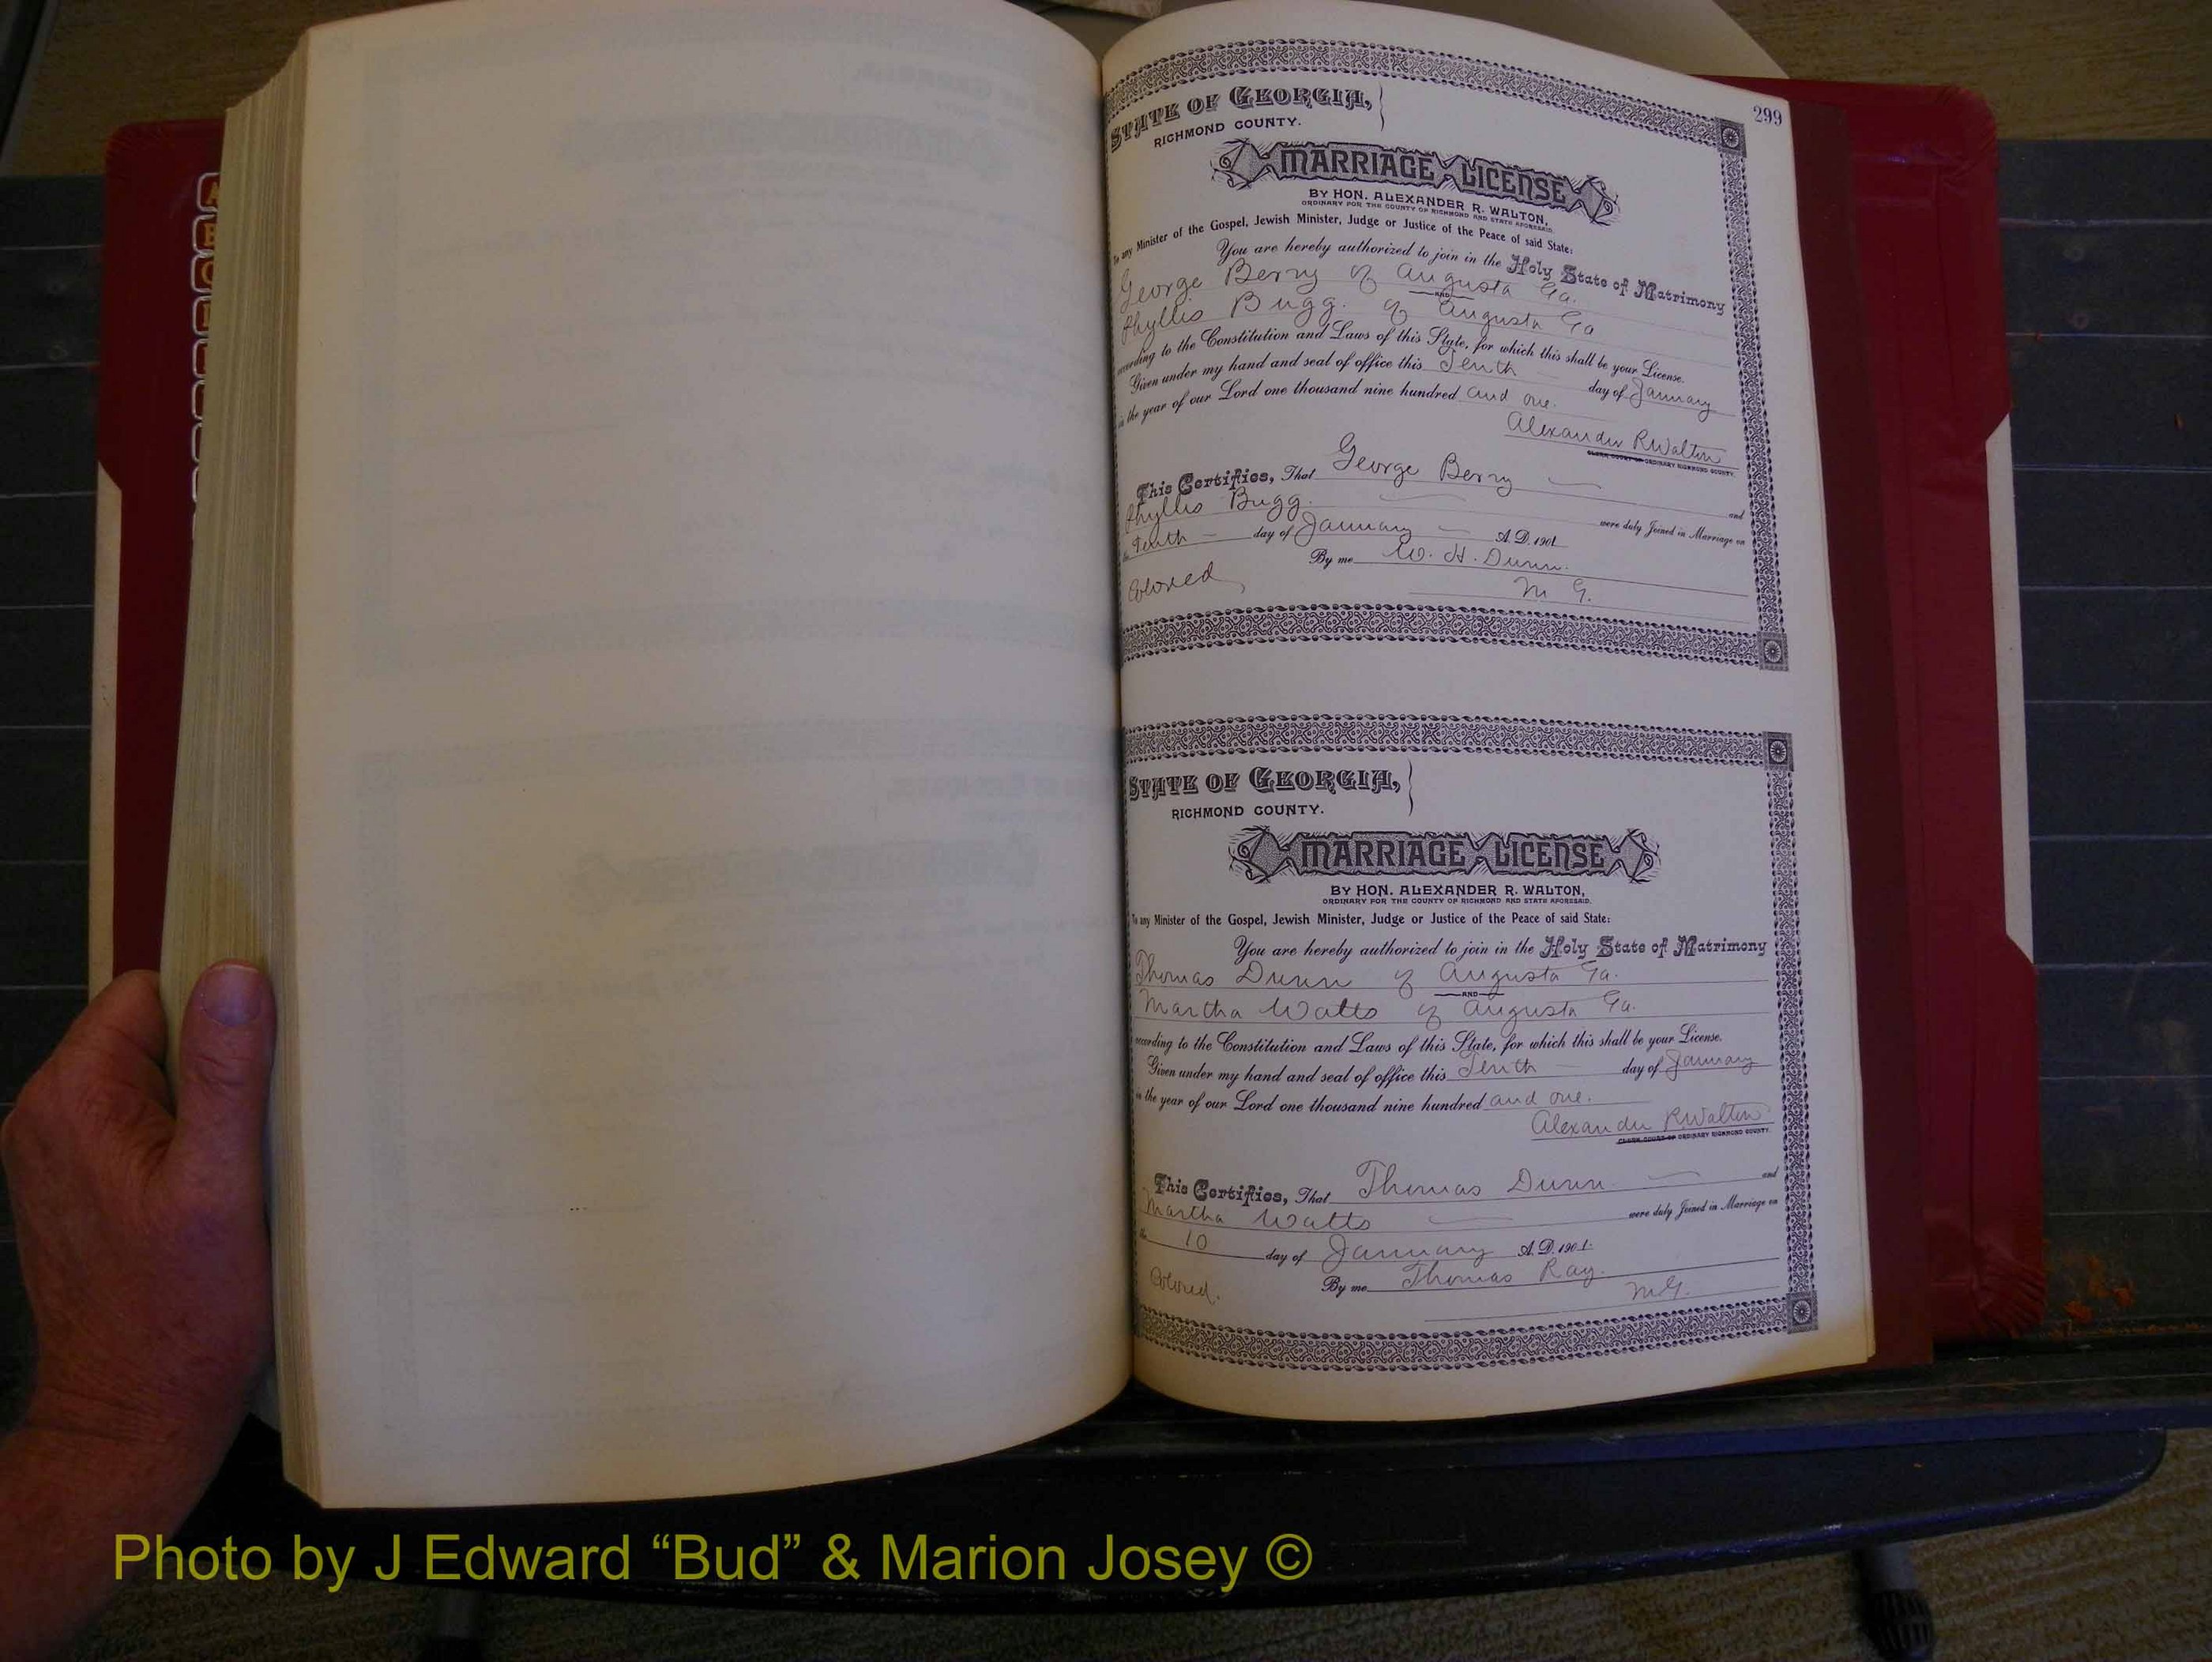 299
STATE OF GEORGIA,
RICHMOND COUNTY.
MARRIAGE LICENSE
BY HON. ALEXANDER R. WALTON,
ORDINARY FOR THE COUNTY OF RICHMOND AND STATE AFORESAID.
To any Minister of the Gospel, Jewish Minister, Judge or Justice of the Peace of said State:
You are hereby authorized to join in the Holy State of Matrimony
George Berry of Augusta Ga.
AND
Phyllis Bugg. of Augusta Ga
according to the Constitution and Laws of this State, for which this shall be your License.
Given under my hand and seal of office this Tenth day of January
in the year of our Lord one thousand nine hundred and one.
Alexander R Walton
CLERK COURT OF ORDINARY RICHMOND COUNTY.
This Certifies, That George Berry and
Phyllis Bugg. were duly Joined in Marriage on
the Tenth day of January A. D. 1901
By me W. H. Dunn.
Colored M G.
STATE OF GEORGIA,
RICHMOND COUNTY.
MARRIAGE LICENSE
BY HON. ALEXANDER R. WALTON,
ORDINARY FOR THE COUNTY OF RICHMOND AND STATE AFORESAID.
To any Minister of the Gospel, Jewish Minister, Judge or Justice of the Peace of said State:
You are hereby authorized to join in the Holy State of Matrimony
Thomas Dunn of Augusta Ga.
AND
Martha Watts of Augusta Ga.
according to the Constitution and Laws of this State, for which this shall be your License.
Given under my hand and seal of office this Tenth day of January
in the year of our Lord one thousand nine hundred and one.
Alexander R Walton
CLERK COURT OF ORDINARY RICHMOND COUNTY.
This Certifies, That Thomas Dunn and
Martha Watts were duly Joined in Marriage on
the 10 day of January A. D. 1901.
Colored. By me Thomas Ray.
M G.
Photo by J Edward “Bud” & Marion Josey ©